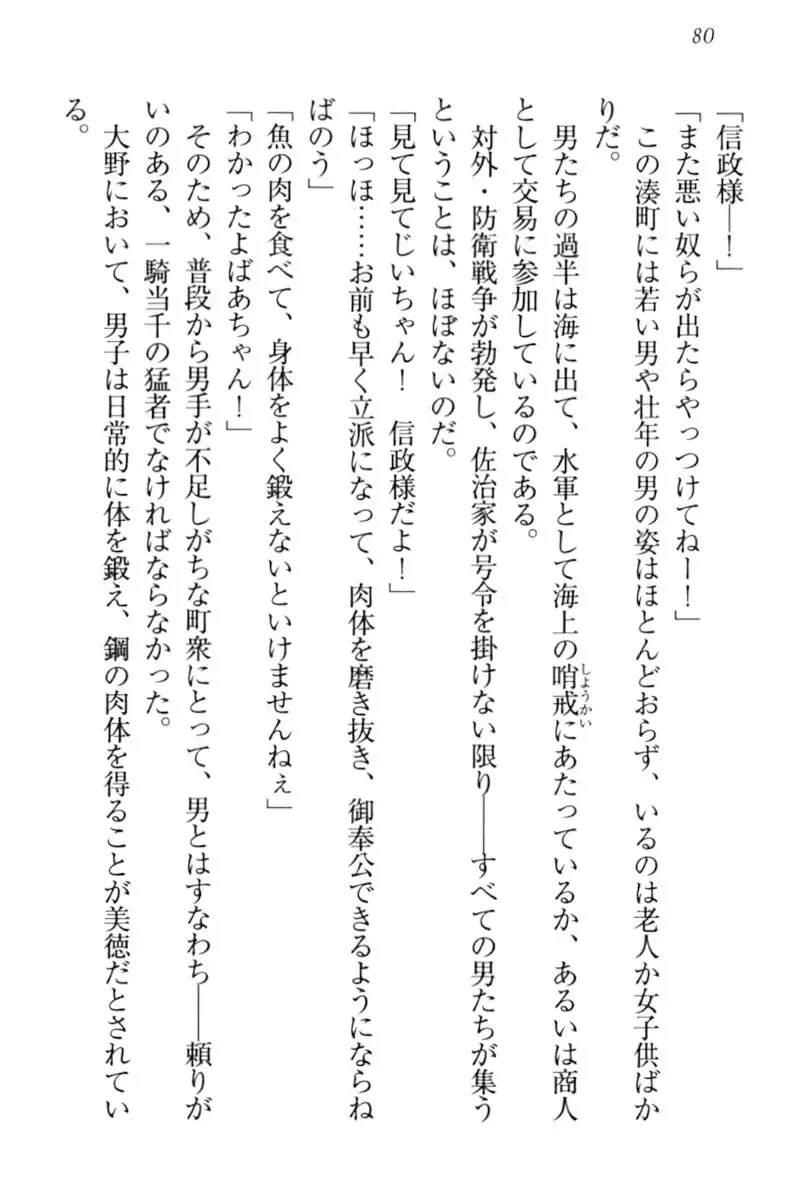 80
「信政様―！」
「また悪い奴らが出たらやっつけてねー！」
　この湊町には若い男や壮年の男の姿はほとんどおらず、いるのは老人か女子供ばか
りだ。
　男たちの過半は海に出て、水軍として海上の哨戒にあたっているか、あるいは商人
として交易に参加しているのである。
　対外・防衛戦争が勃発し、佐治家が号令を掛けない限り――すべての男たちが集う
ということは、ほぼないのだ。
「見て見てじいちゃん！　信政様だよ！」
「ほっほ……お前も早く立派になって、肉体を磨き抜き、御奉公できるようにならね
ばのう」
「魚の肉を食べて、身体をよく鍛えないといけませんねぇ」
「わかったよばあちゃん！」
　そのため、普段から男手が不足しがちな町衆にとって、男とはすなわち――頼りが
いのある、一騎当千の猛者でなければならなかった。
　大野において、男子は日常的に体を鍛え、鋼の肉体を得ることが美徳だとされてい
る。
しょうかい